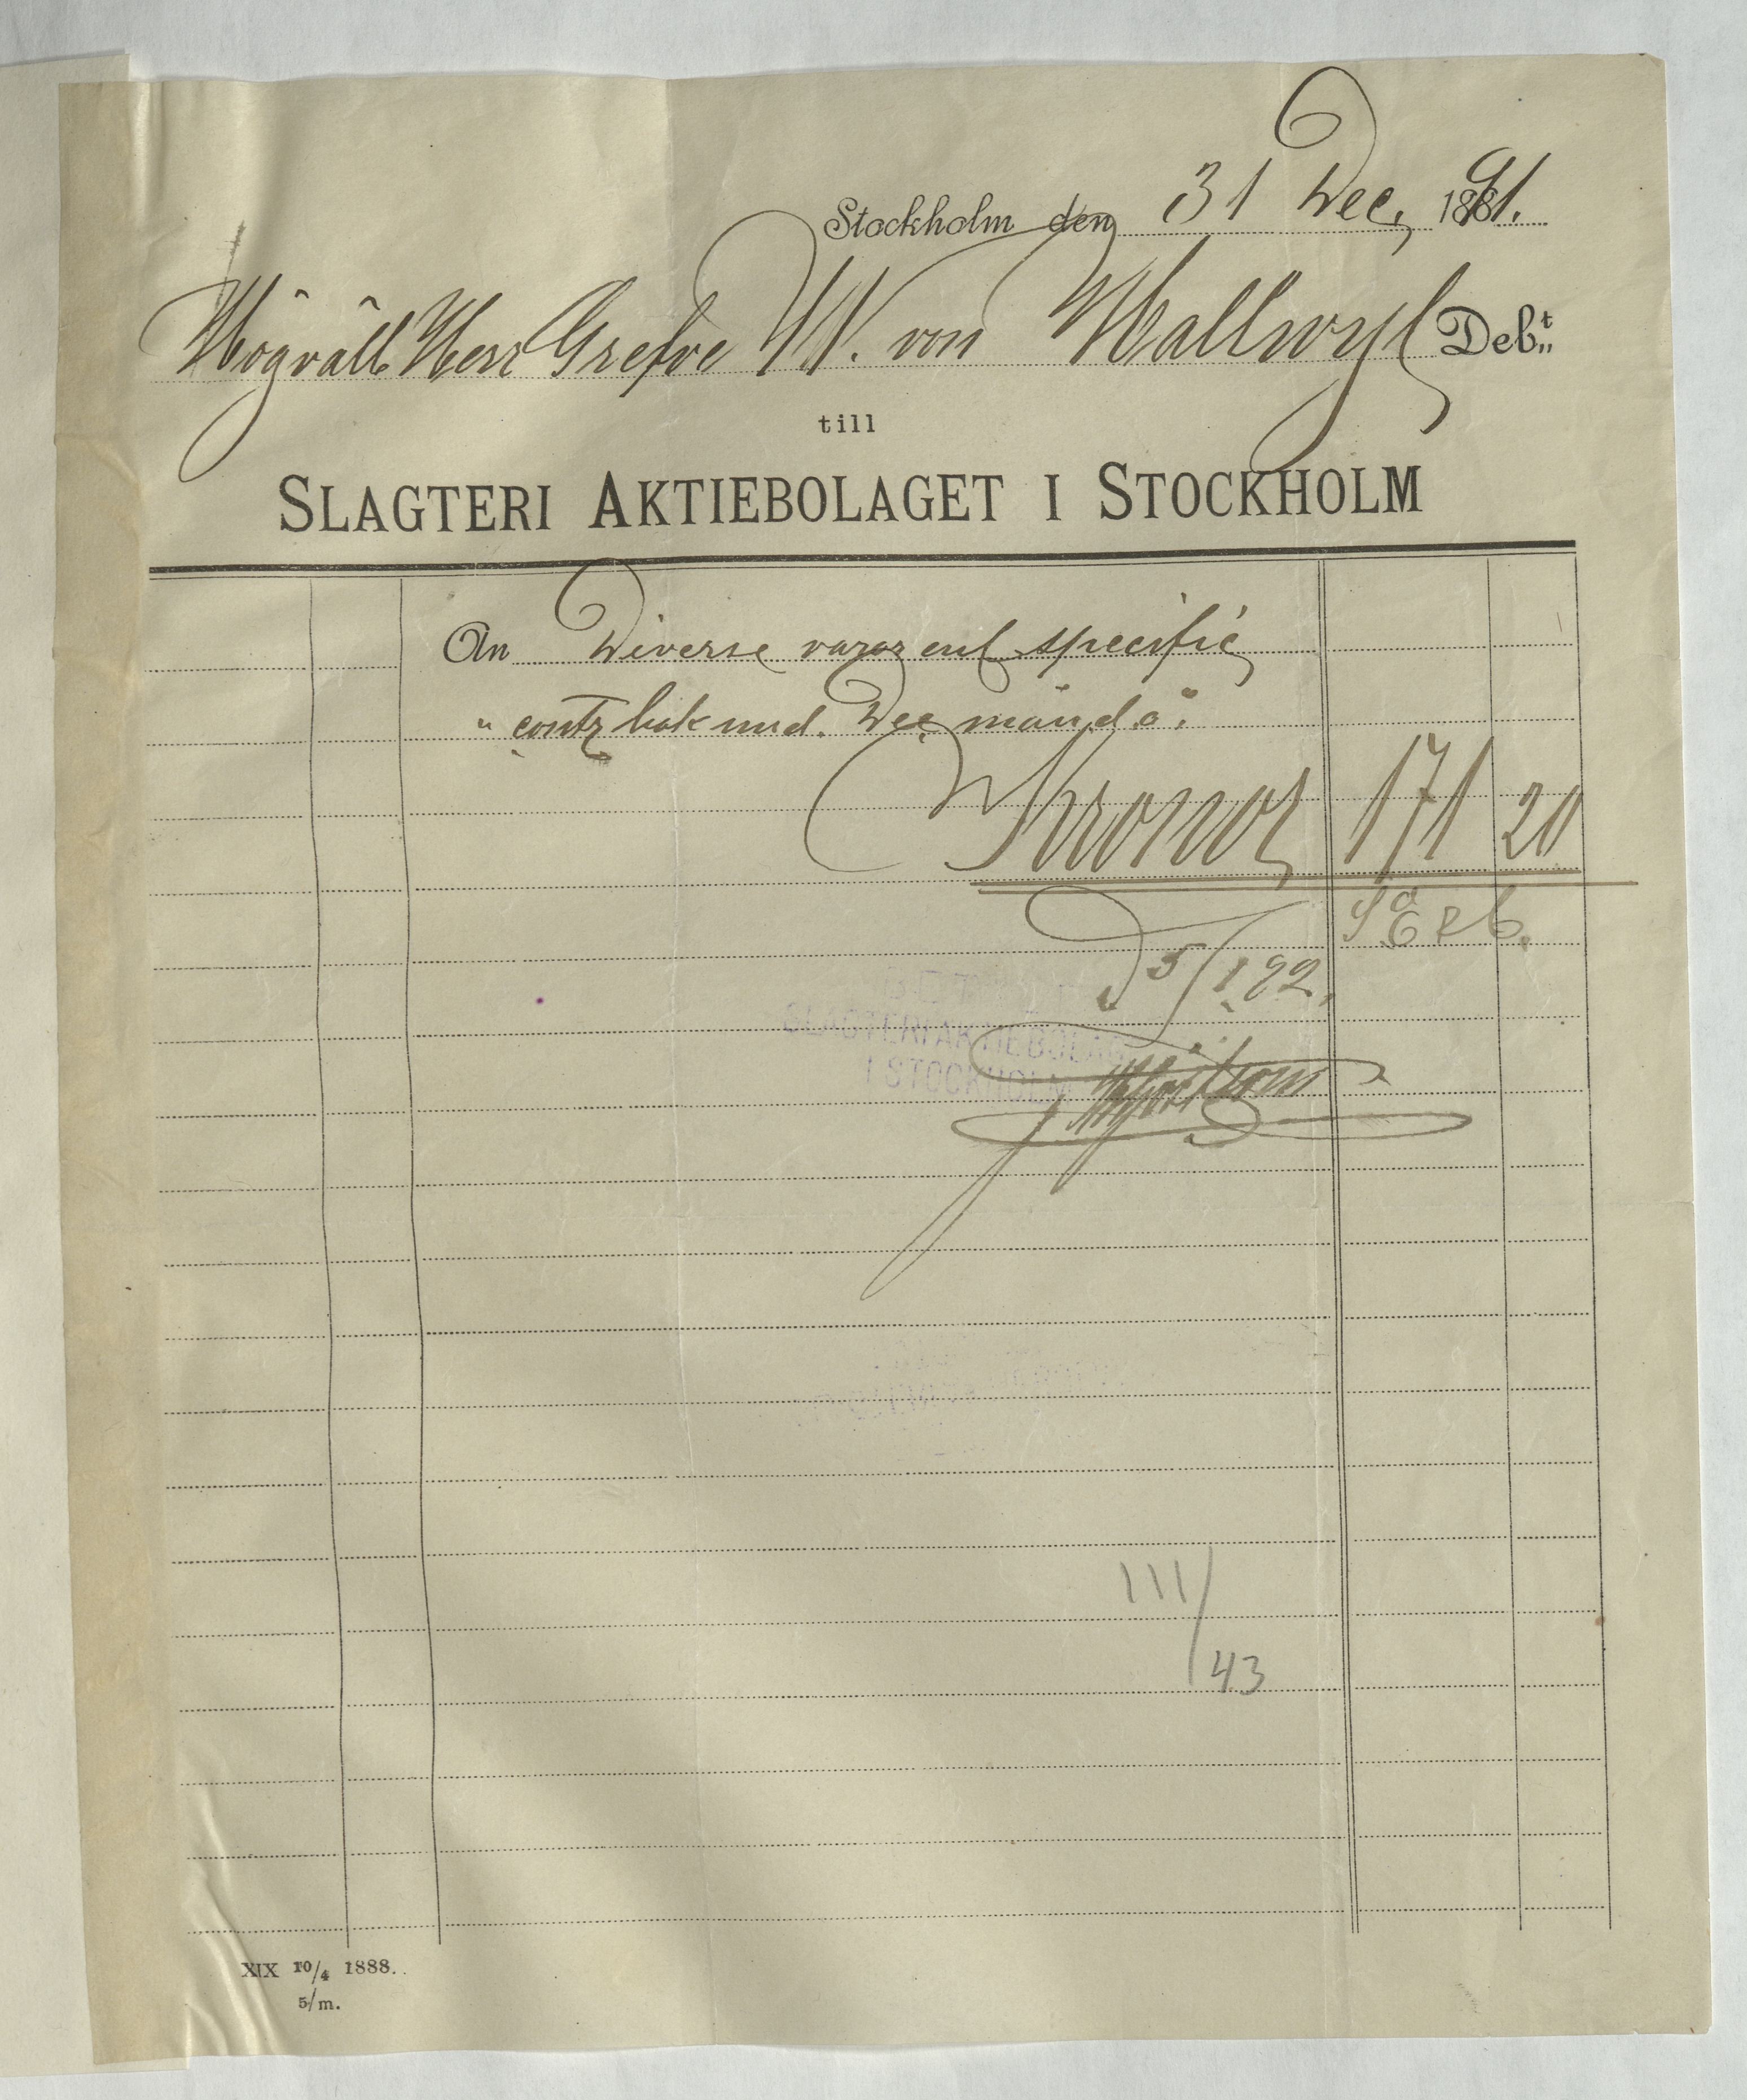 Stockholm den 31 Dec. 1891.
Högvälb Herr Grefve W. von Hallwyl Deb:t
till
SLAGTERI AKTIEBOLAGET I STOCKHOLM
An Diverse varor enl specific
" contr bok und. Dec månd.
Kronor 171 20
5/1 92.
SLAGTERI AKTIEBOLAG
I STOCKHOLM
111/43
XIX 10/4 1888.
5/m.